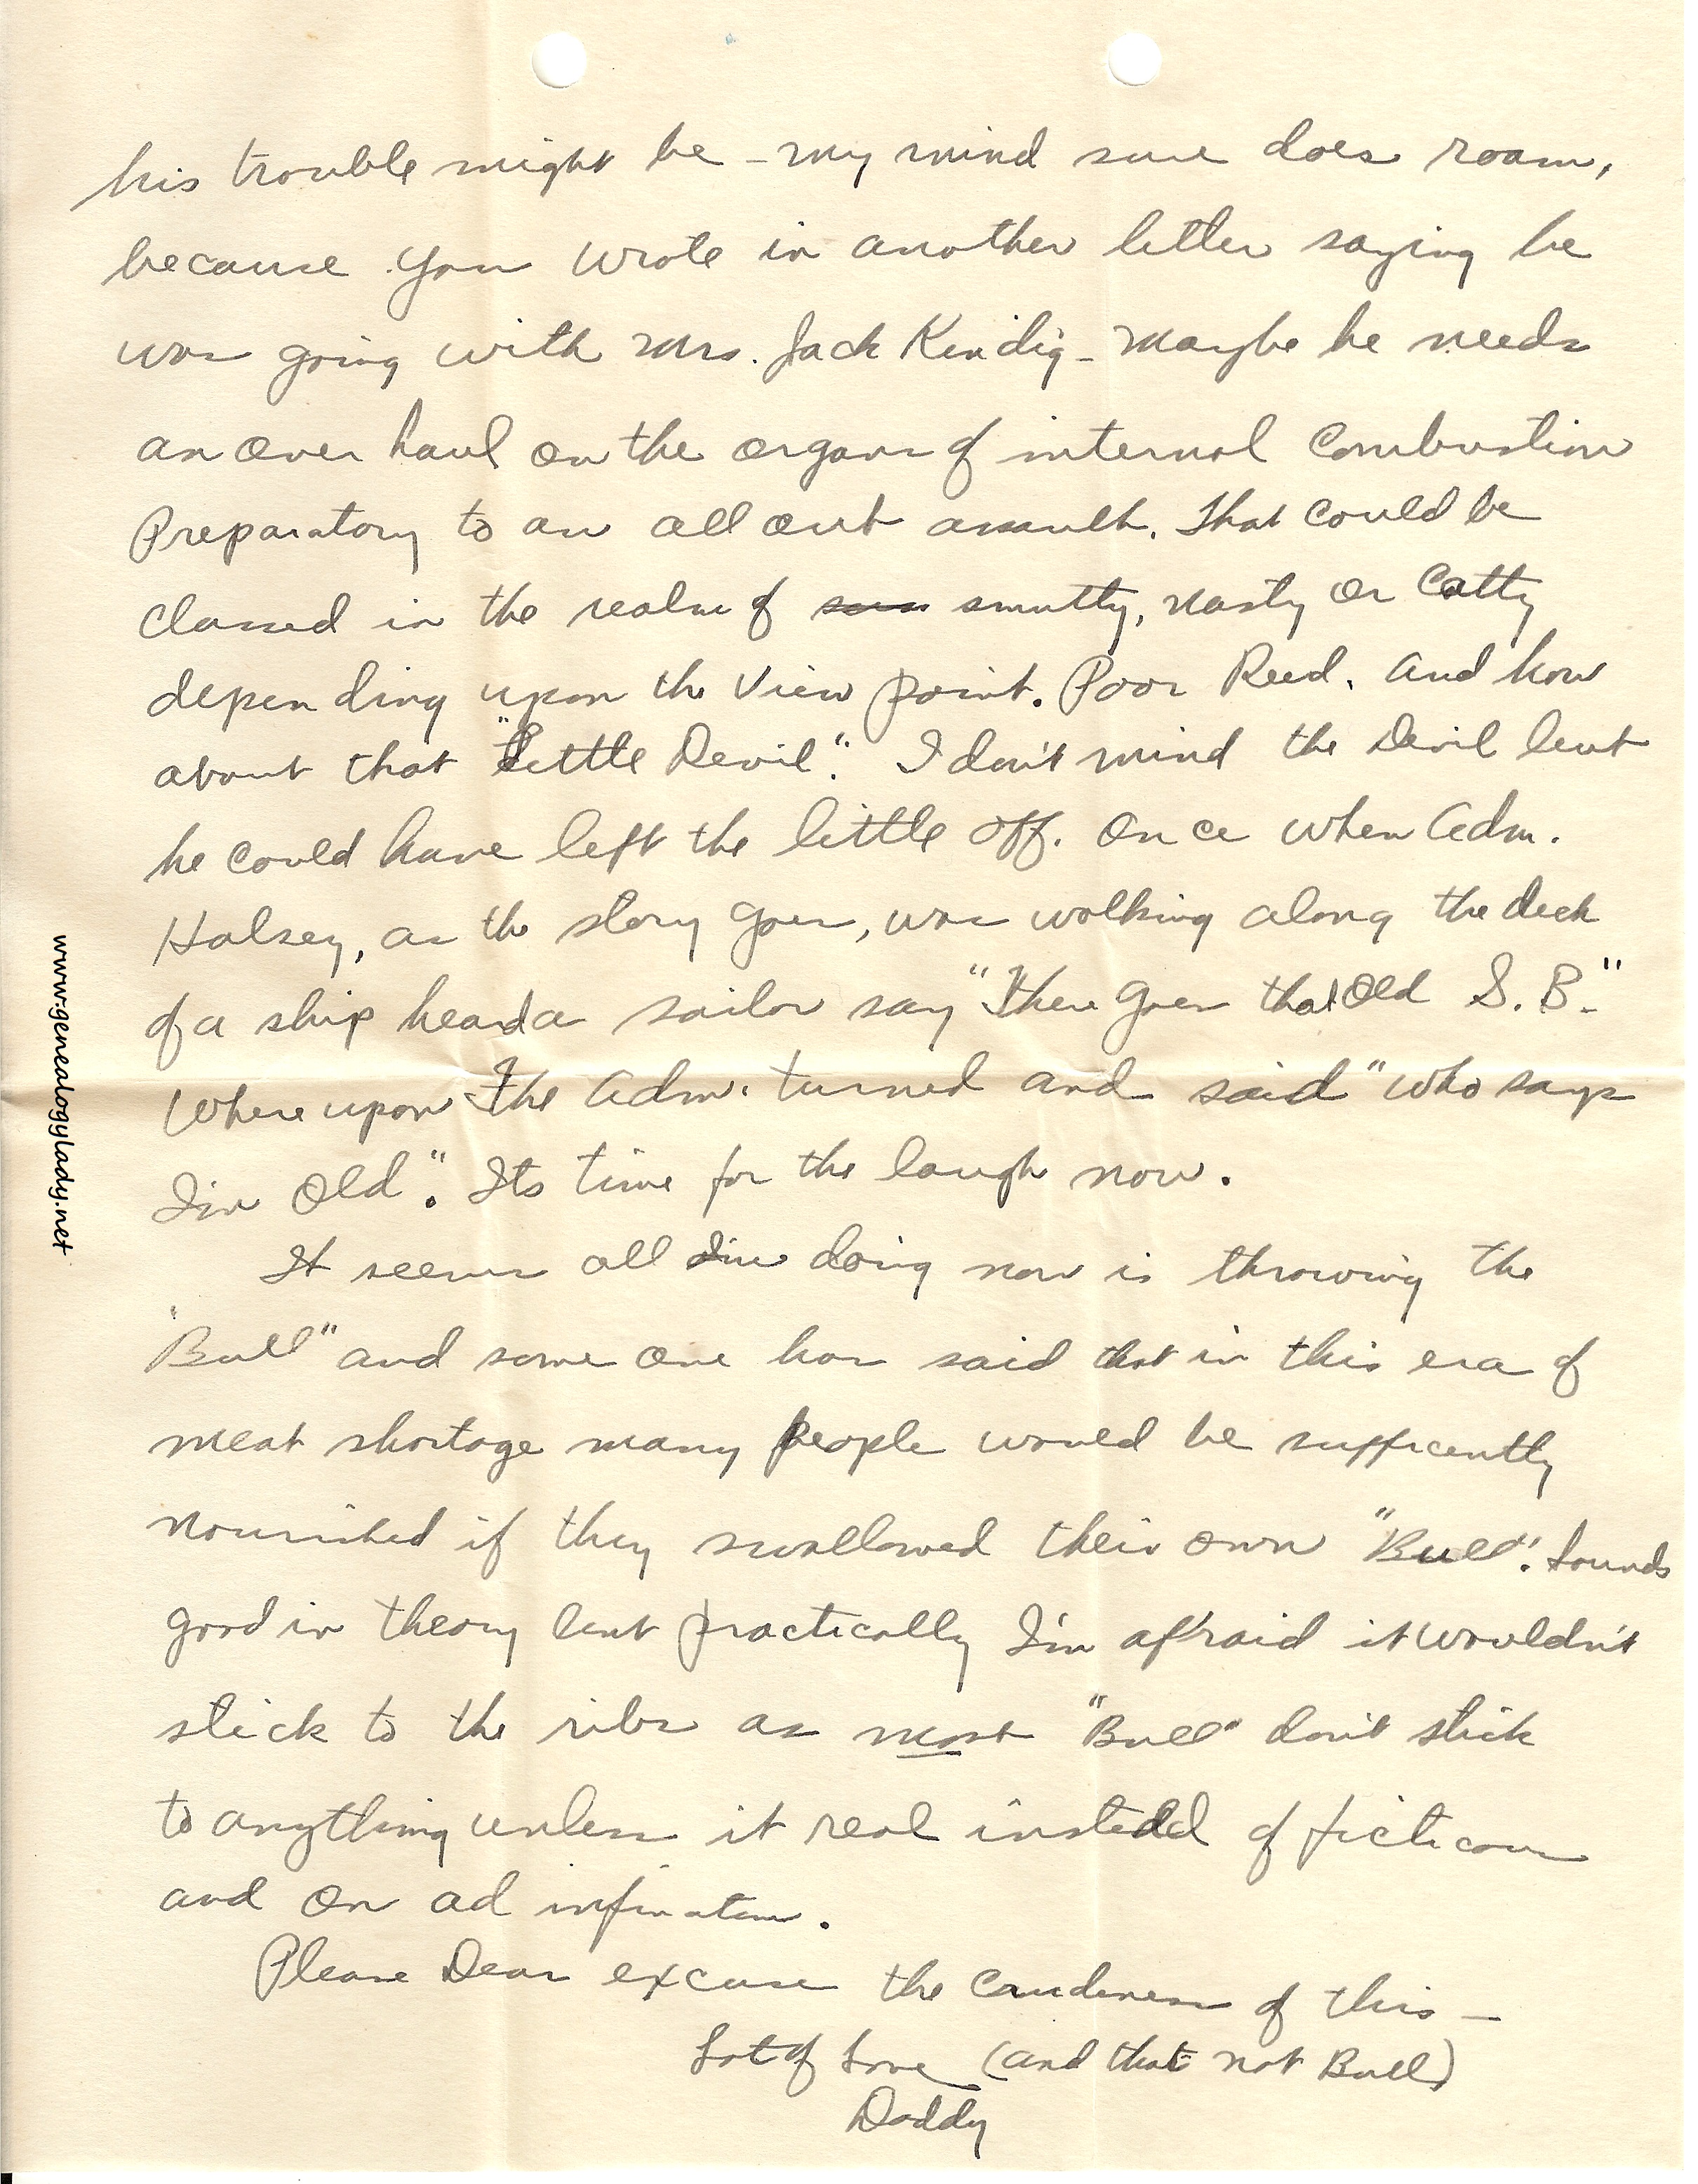 his trouble might be - my mind sure does roam,
because you wrote in another letter saying he
was going with Mrs. Jack Kindig - maybe he needs
an over haul on the organs of internal combustion
Preparatory to an all out assault. That could be
classed in the realm of smutty, nasty or Catty
depending upon the View point. Poor Reed. And how
about that "Little Devil". I don't mind the Devil but
he could have left the little off. Once when Adm.
Halsey, as the story goes, was walking along the deck
of a ship heard a sailor say "There goes that old S. B."
Where upon The Adm. turned and said "who says
I'm old". Its time for the laugh now.
It seems all I'm doing now is throwing the
"Bull" and some one has said that in this era of
meat shortage many people would be sufficently
nourished if they swallowed their own "Bull". Sounds
good in theory but practically I'm afraid it wouldn't
stick to the ribs as most "Bull" don't stick
to anything unless it real instead of ficticous
and on ad infinatum.
Please Dear excuse the crudeness of this -
Lot of Love (and that not Bull)
Daddy
www.genealogylady.net